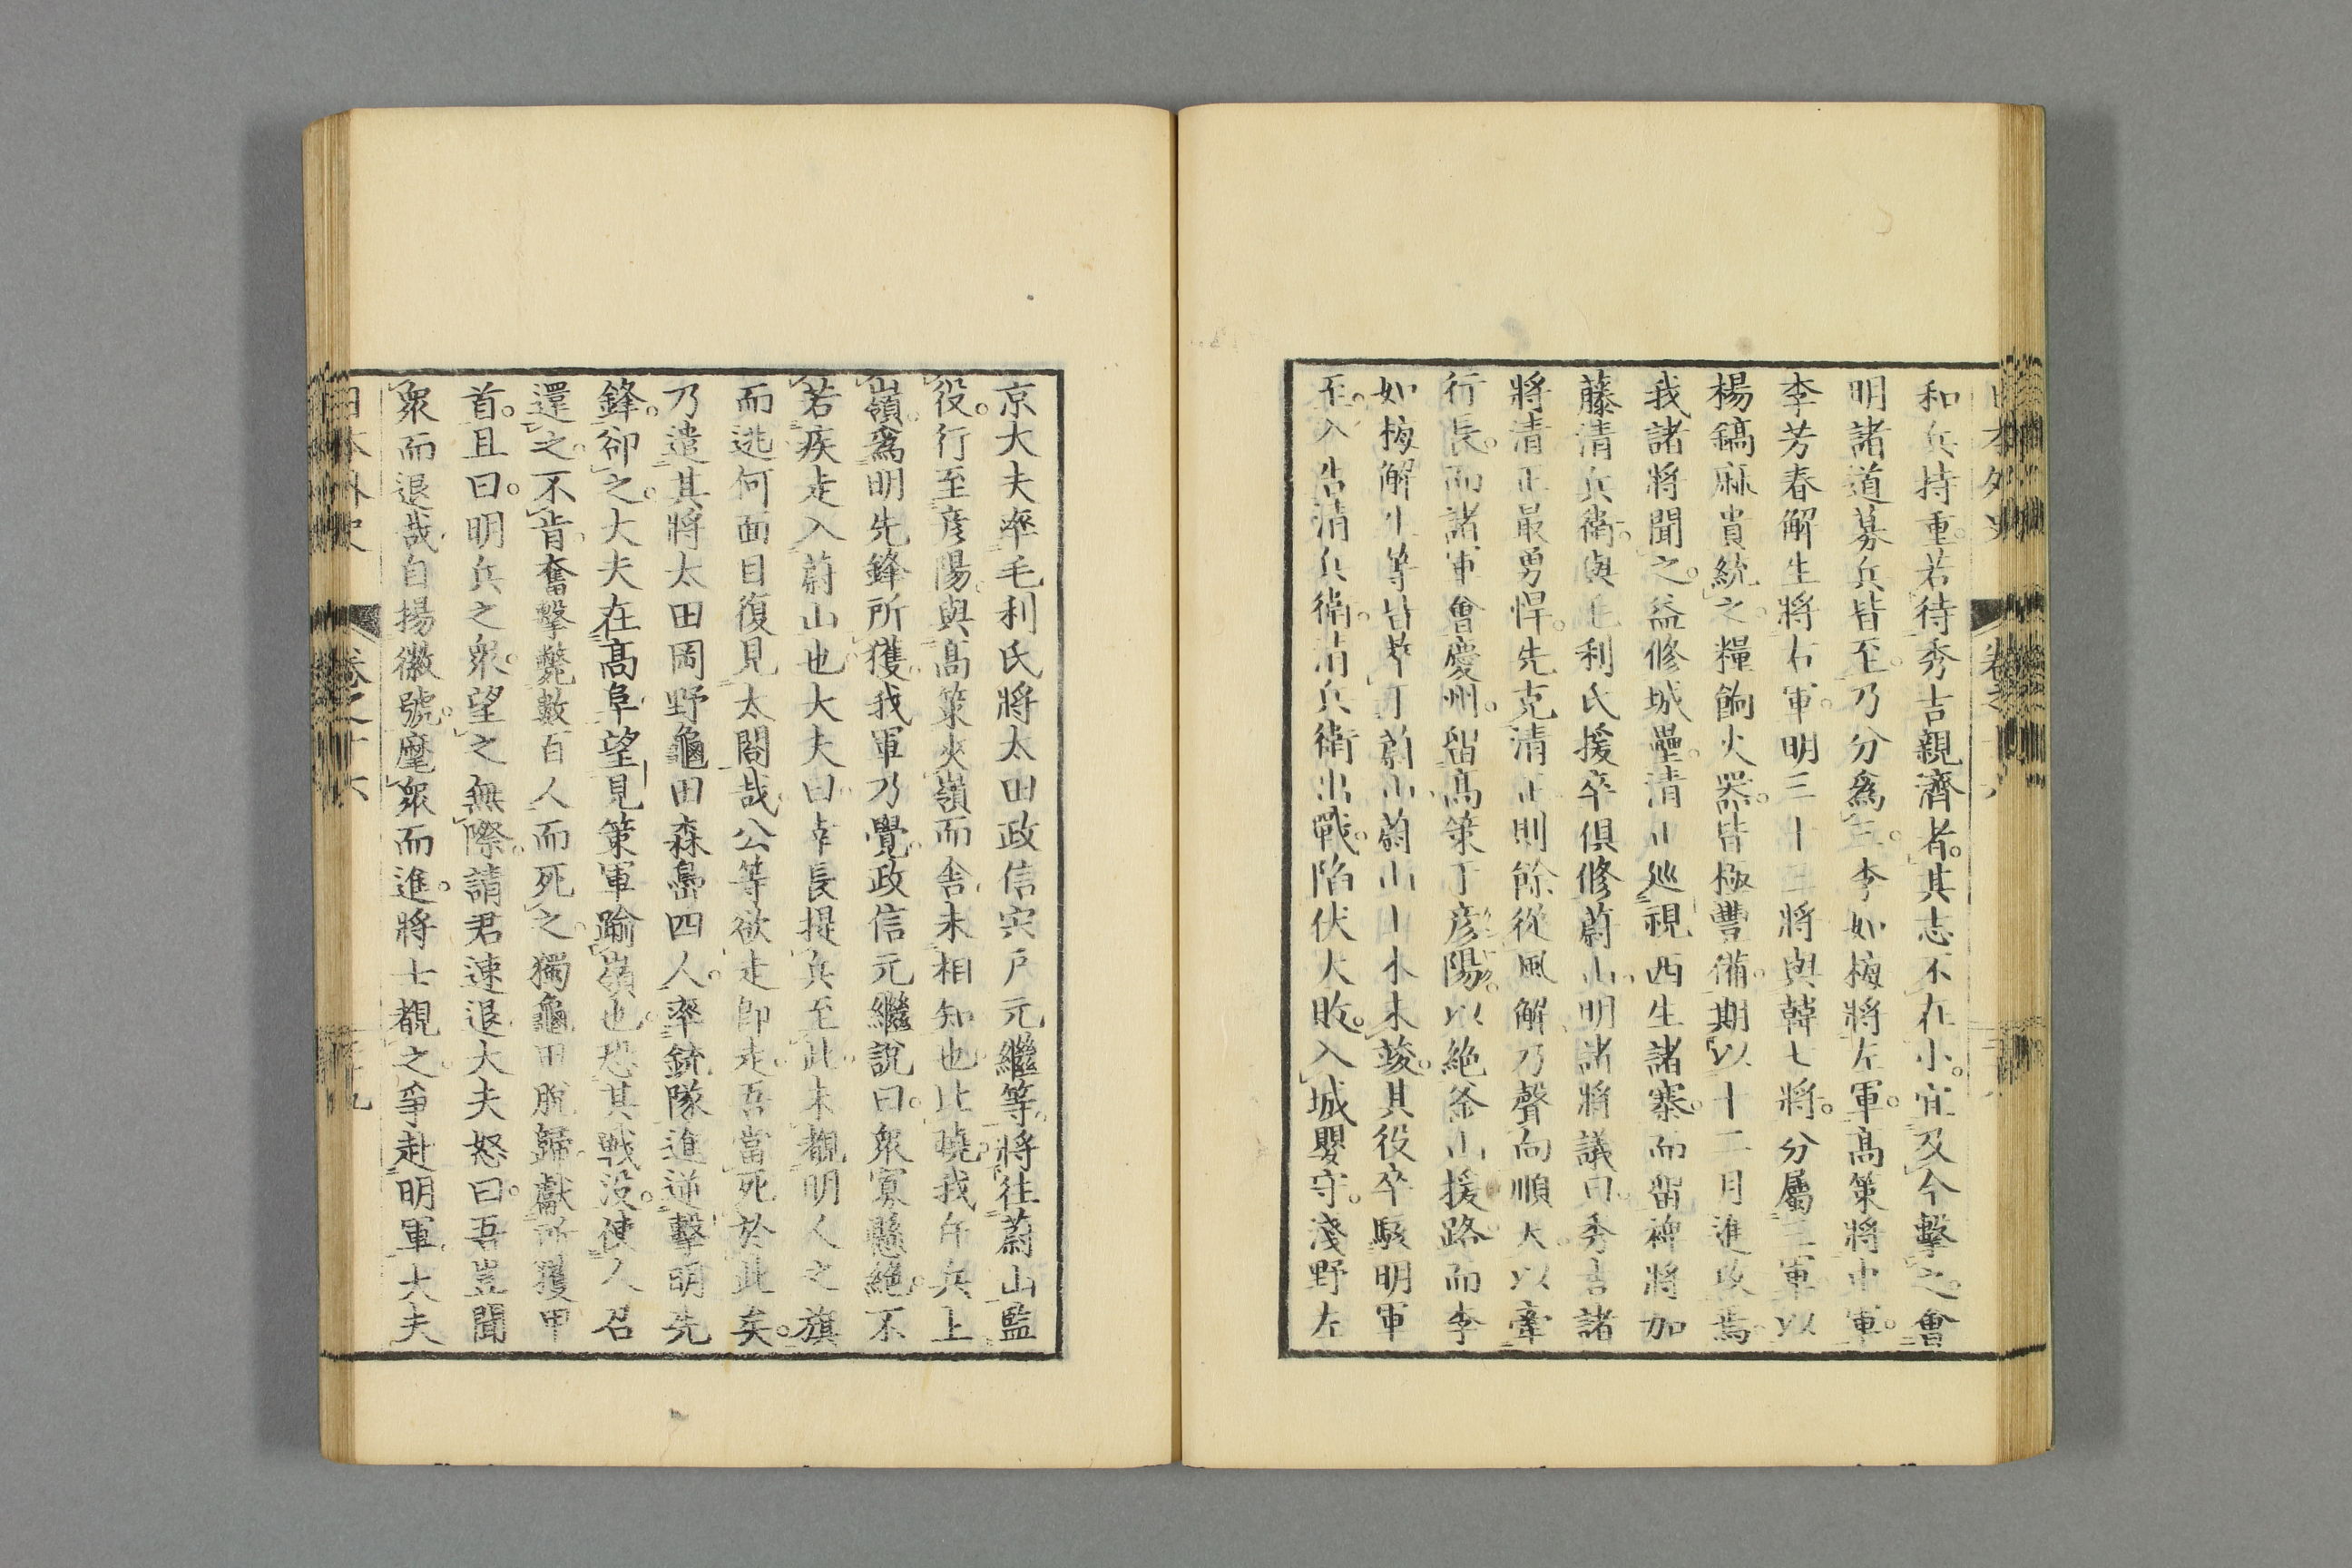 日本外史 卷之十六
和兵持重。若待秀吉親濟者。其志不在小。宜及今擊之。會
明諸道募兵皆至。乃分爲三。李如梅將左軍。高策將中軍。
李芳春解生將右軍。明三十三將與韓七將。分屬三軍。以
楊鎬麻貴統之。糧餉火器。皆極豐備。期以十二月進攻焉。
我諸將聞之。益修城壘。清正巡視西生諸寨。而留裨將加
藤清兵衛。與毛利氏援卒俱修蔚山。明諸將議曰。秀吉諸
將清正最勇悍。先克清正則餘從風解。乃聲向順天。以牽
行長。而諸軍會慶州。留高策于彥陽。以絶釜山援路。而李
如梅解生等皆萃于蔚山。蔚山工未竣。其役卒駭明軍
至。入告清兵衛。清兵衛出戰。陷伏大敗。入城嬰守。淺野左
京大夫率毛利氏將太田政信宍戶元繼等。將往蔚山監
役。行至彥陽。與高策夾嶺而舍。未相知也。比曉。我午兵上
嶺。爲明先鋒所獲。我軍乃覺。政信元繼說曰。衆寡懸絶。不
若疾走入蔚山也。大夫曰。幸長提兵至此。未覩明人之旗
而逃。何面目復見太閤哉。公等欲走即走。吾當死於此矣。
乃遣其將太田岡野龜田森島四人。率銃隊進逆擊明先
鋒。卻之。大夫在高阜。望見策軍踰嶺也。恐其戰沒。使人召
還之。不肯。奮擊斃數百人而死之。獨龜田脫歸。獻所獲甲
首。且曰。明兵之衆。望之無際。請君速退。大夫怒曰。吾豈聞
衆而退哉。自揚徽號。麾衆而進。將士覩之。爭赴明軍。大夫
日本外史 卷之十六